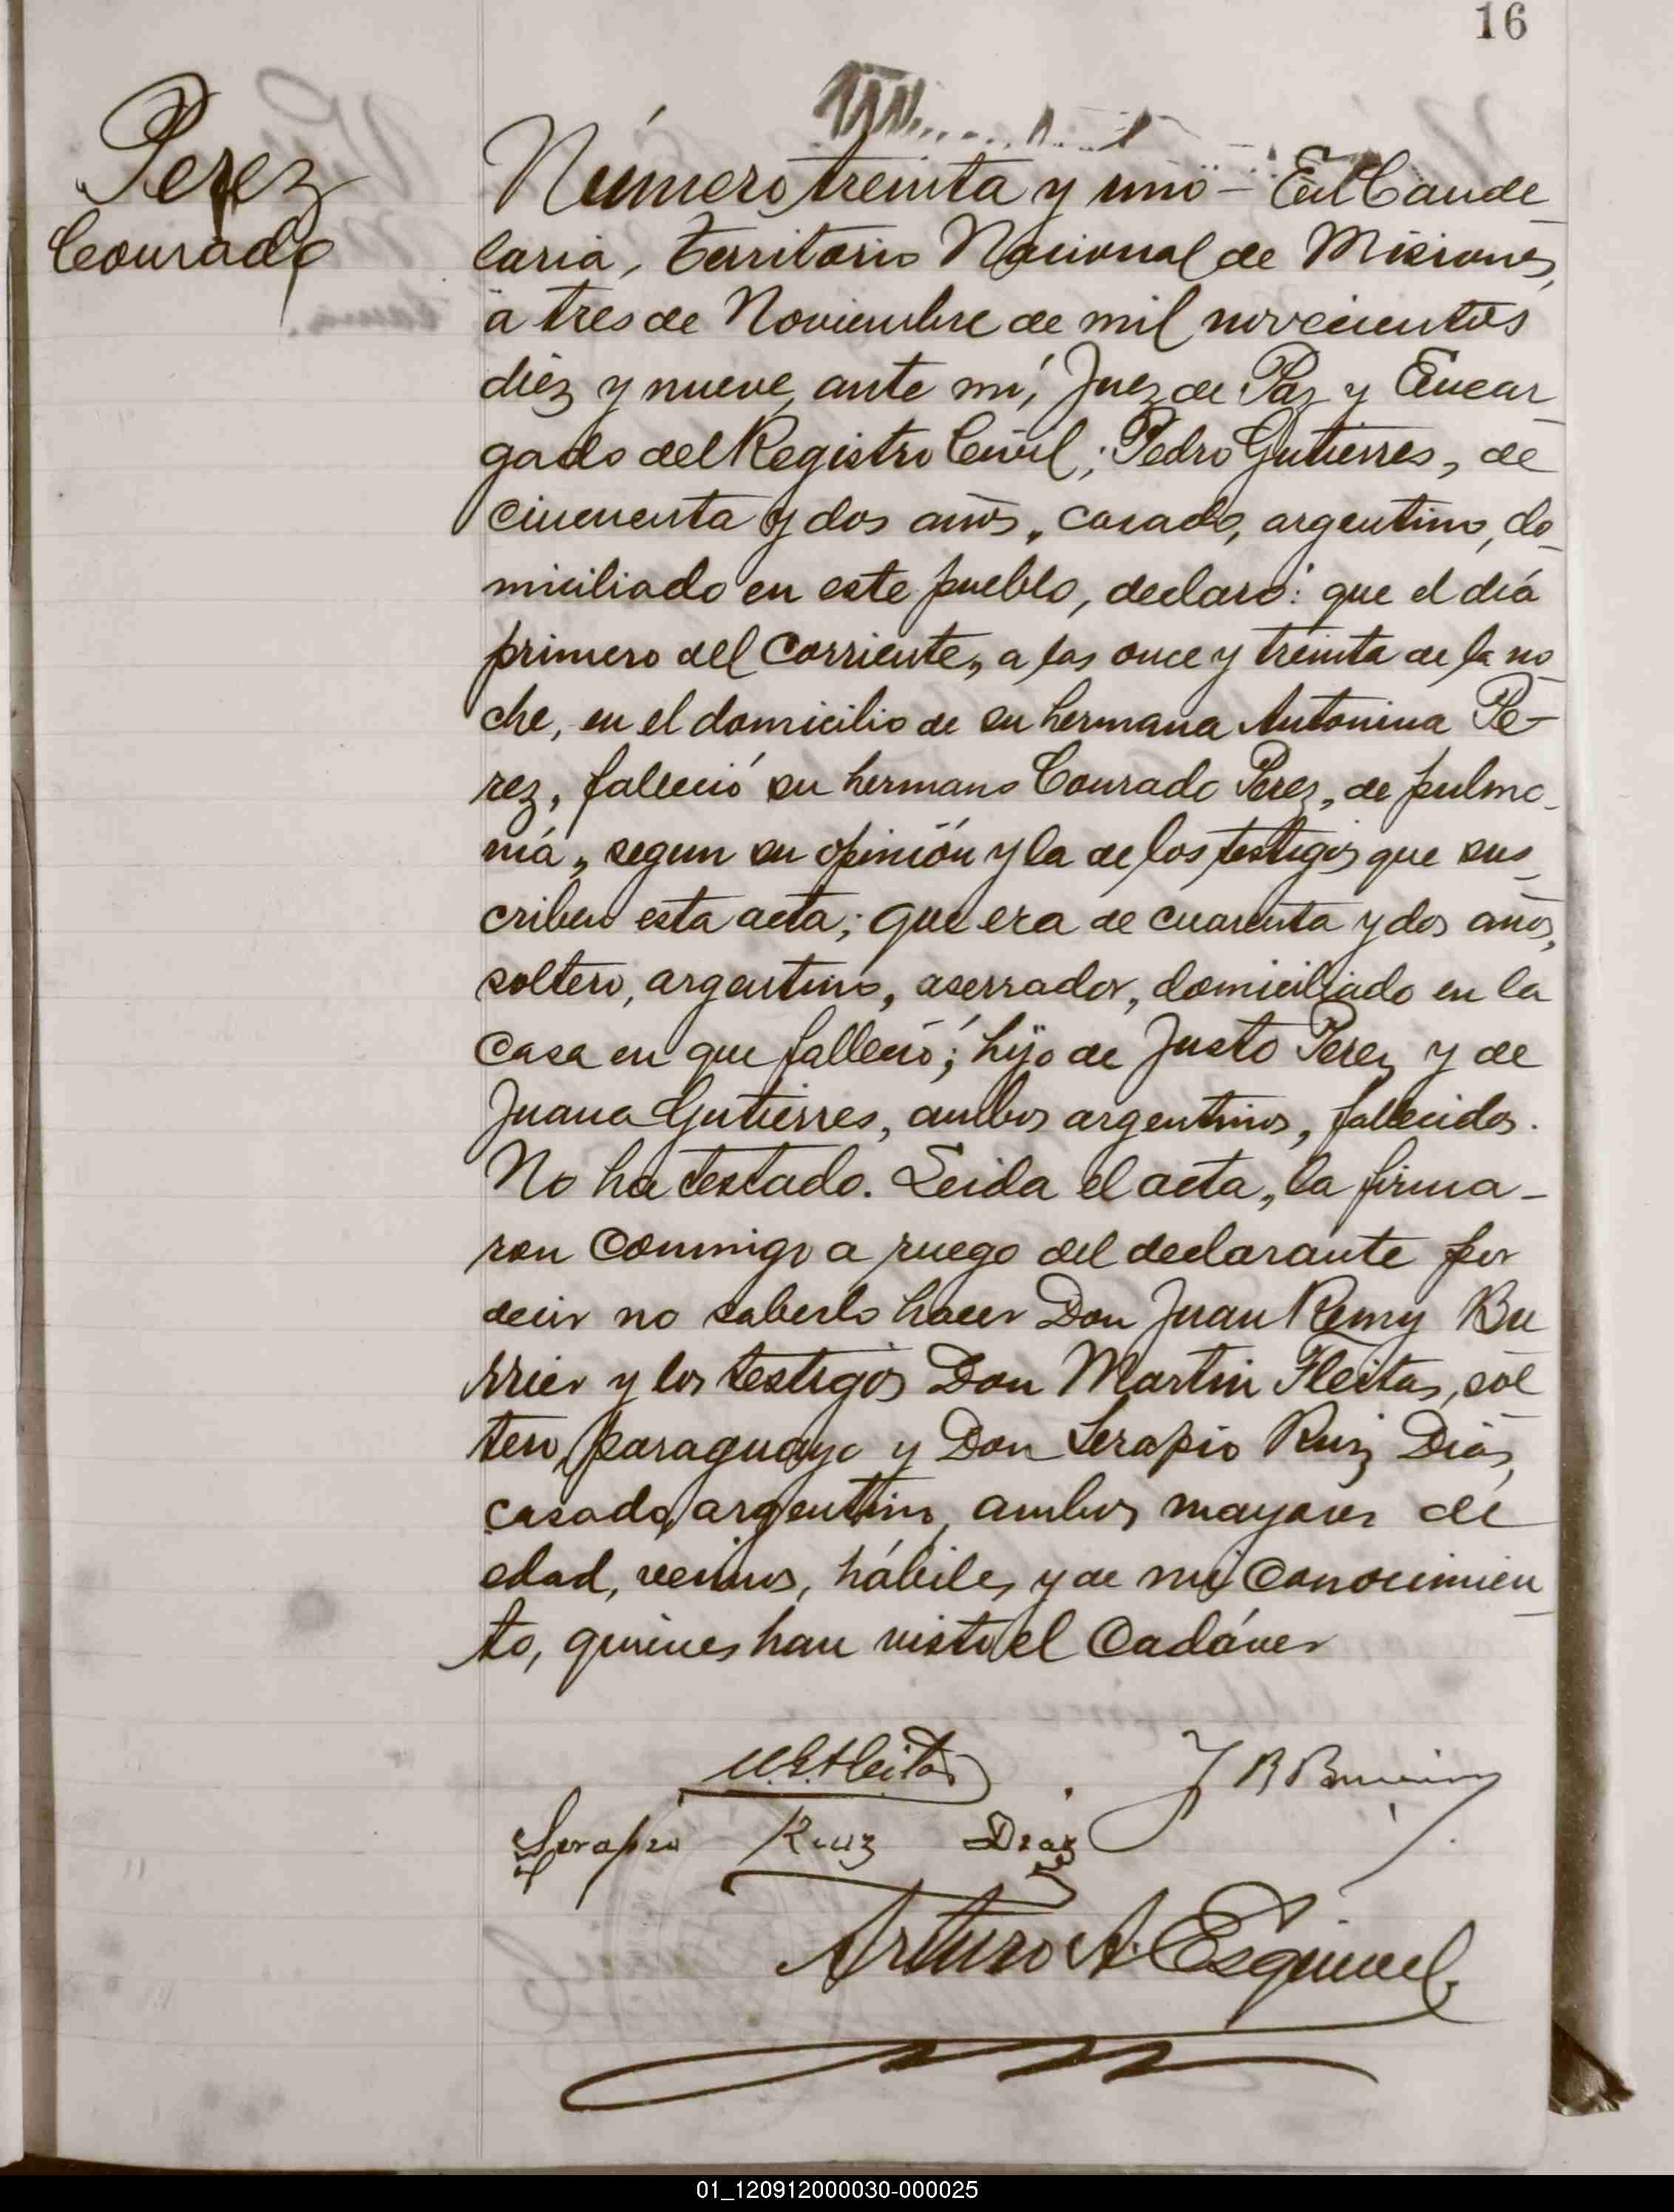 16
Perez
Conrado
Número treinta y uno – En Cande
laria, Territorio Nacional de Misiones,
a tres de Noviembre de mil novecientos
diez y nueve, ante mí, Juez de Paz y Encar
gado del Registro Civil; Pedro Gutierres, de
cincuenta y dos años, casado, argentino, do
miciliado en este pueblo, declaró: que el día
primero del corriente, a las once y treinta de la no
che, en el domicilio de su hermana Antonina Pe-
rez, falleció su hermano Conrado Perez, de pulmo
nía, segun su opinión y la de los testigos que sus
criben esta acta; que era de cuarenta y dos años,
soltero, argentino, aserrador, domiciliado en la
casa en que falleció; hijo de Justo Perez y de
Juana Gutierres, ambos argentinos, fallecidos.
No ha testado. Leida el acta, la firma-
ron conmigo a ruego del declarante por
decir no saberlo hacer Don Juan Remy Bu
rrier y los testigos Don Martin Fleitas, sol
tero, paraguayo y Don Serapio Ruiz Dias,
casado, argentino, ambos mayores de
edad, vecinos, hábiles y de mi conocimien
to, quienes han visto el cadáver
M.E. Fleitas
J R Burrier
Serapio Ruiz Diaz
Arturo A. Esquivel
01_120912000030-000025